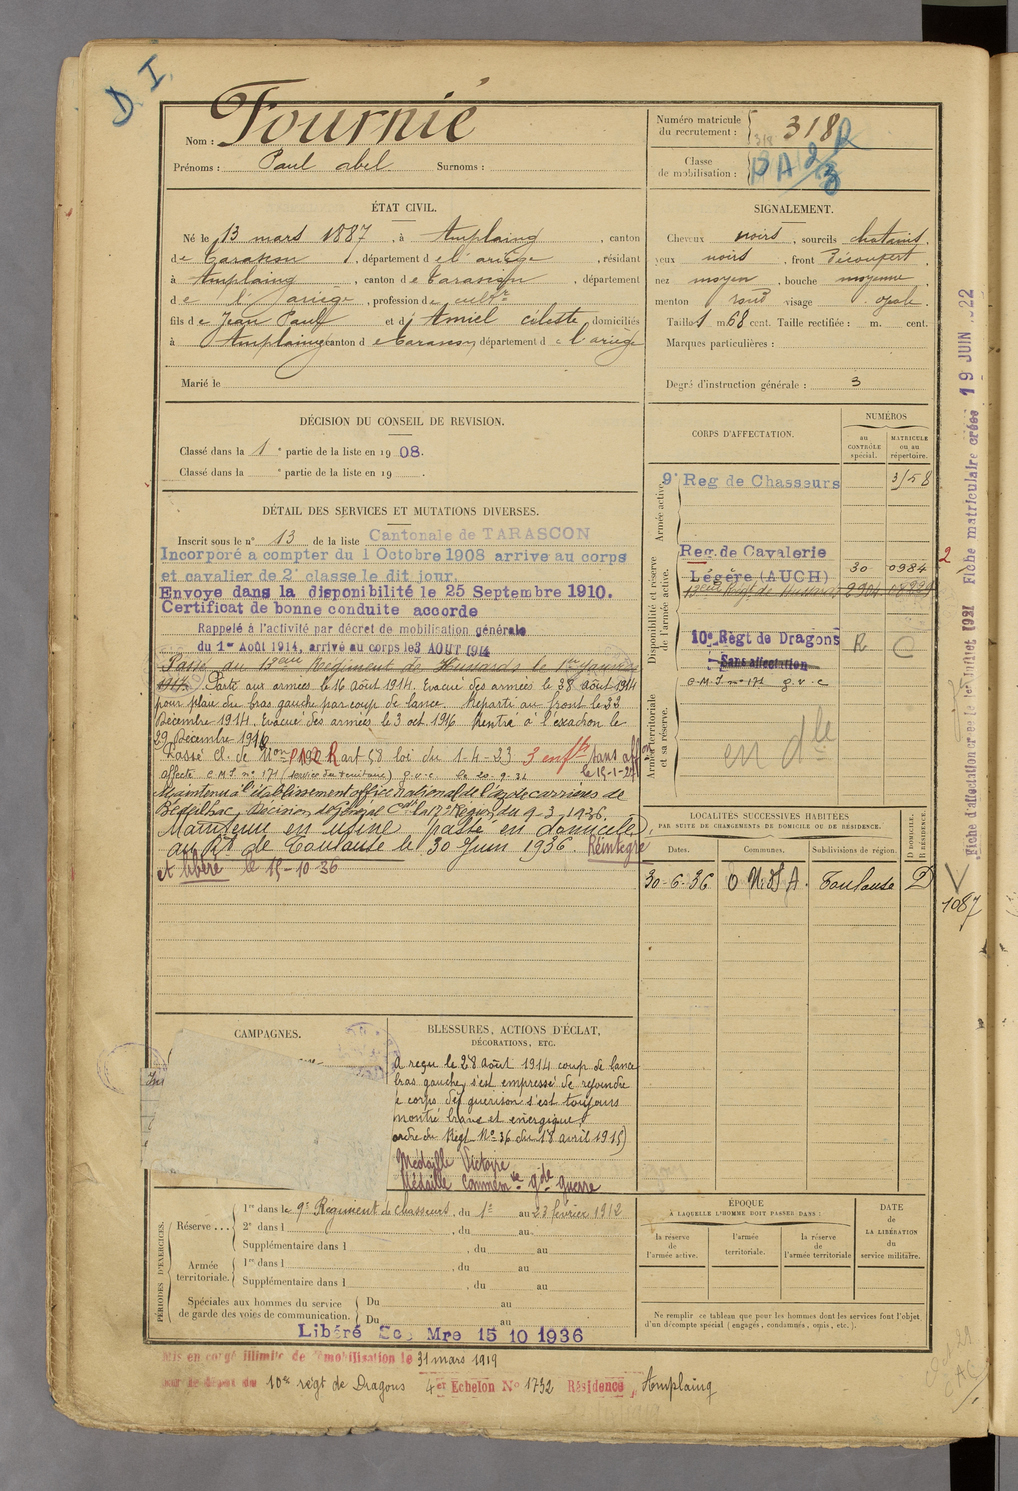 D. I.
Nom : Fournié
Prénoms : Paul Abel Surnoms :
Numéro matricule du recrutement : 318
Classe de mobilisation :
ÉTAT CIVIL.
Né le 13 mars 1887, à Amplaing, canton
de Tarascon, département de l'ariège, résidant
à Amplaing, canton de Tarascon, département
de l'ariège, profession de cultr
fils de Jean Paul et d'Amiel céleste domiciliés
à Amplaing canton de Tarascon département de l'ariège
Marié le
SIGNALEMENT.
Cheveux noirs, sourcils chatains,
yeux noirs, front Découvert,
nez moyen, bouche moyenne
menton rond visage ovale.
Taille 1 m 68 cent. Taille rectifiée : m. cent.
Marques particulières :
Degré d'instruction générale : 3
DÉCISION DU CONSEIL DE REVISION.
Classé dans la 1e partie de la liste en 1908.
Classé dans la e partie de la liste en 19 .
DÉTAIL DES SERVICES ET MUTATIONS DIVERSES.
Inscrit sous le n° 13 de la liste Cantonale de TARASCON
Incorporé a compter du 1 Octobre 1908 arrive au corps
et cavalier de 2e classe le dit jour.
Envoye dans la disponibilité le 25 Septembre 1910.
Certificat de bonne conduite accorde
Rappelé à l'activité par décret de mobilisation générale
du 1er Août 1914, arrivé au corps le 3 AOUT 1914
Passé au Régiment de Hussards le 1er Janvier
Parti aux armées le 16 Août 1914. Evacué des armées le 28 août 1914
pour plaie du bras gauche par coup de lance. Reparti au front le 22
Décembre 1914. Evacué des armées le 3 oct. 1916 Rentré à l'escadron le
29 Décembre 1916
Passé cl. de Mon art 58 loi du 1-4-23 3 enfts sans aff
le 15-1-27
affecté C.M.I. n° 171 (service du territoire) g.v.c le
Maintenu à l'établissement office national de l'az de carrières de
Bédeilhac, Décision du Général Cdt la 17e Région du 9-3-1936.
Maintenu en usine, passé en domicile
au Rt de Toulouse le 30 Juin 1936. Réintégré
et libéré le 15-10-36
CORPS D'AFFECTATION.
NUMÉROS
au CONTRÔLE spécial.
MATRICULE ou au répertoire.
Armée active.
9e Reg de Chasseurs 3158
Disponibilité et réserve de l'armée active.
Reg. de Cavalerie
Légère (AUCH) 30 0984
10e Règt de Dragons R C
Sans affectation
C.M.I. n° 171 g.v.c
Armée territoriale et sa réserve.
en dlle
LOCALITÉS SUCCESSIVES HABITÉES
PAR SUITE DE CHANGEMENTS DE DOMICILE OU DE RÉSIDENCE.
Dates. Communes. Subdivisions de région. D DOMICILE. R RÉSIDENCE.
30-6-36 Toulouse D
CAMPAGNES.
BLESSURES, ACTIONS D'ÉCLAT,
DÉCORATIONS, ETC.
A reçu le 28 Août 1914 coup de lance
bras gauche, s'est empressé de rejoindre
le corps dès guérison s'est toujours
montré brave et énergique.
ordre du Régt N° 36 du 18 avril 1915)
Médaille Victoire
Médaille commemve gde guerre
PÉRIODES D'EXERCICES.
Réserve .... 1re dans le 9e Régiment de chasseurs, du 1er au 23 février 1912
2e dans l , du au
Supplémentaire dans l , du au
Armée territoriale. 1re dans l , du au
Supplémentaire dans l , du au
Spéciales aux hommes du service de garde des voies de communication. Du au
Du au
Libéré Sce Mre 15 10 1936
ÉPOQUE
À LAQUELLE L'HOMME DOIT PASSER DANS :
la réserve de l'armée active.
l'armée territoriale.
la réserve de l'armée territoriale
DATE DE LA LIBÉRATION du service militaire.
Ne remplir ce tableau que pour les hommes dont les services font l'objet
d'un décompte spécial (engagés, condamnés, omis, etc.).
Mis en congé illimité de démobilisation le 31 mars 1919
par le dépôt du 10e régt de Dragons 4er Echelon No 1732 Résidence, Amplaing
Fiche d'affectation créée le 1er Juillet 1921 Fiche matriculaire créée 19 JUIN 1922
2
1087